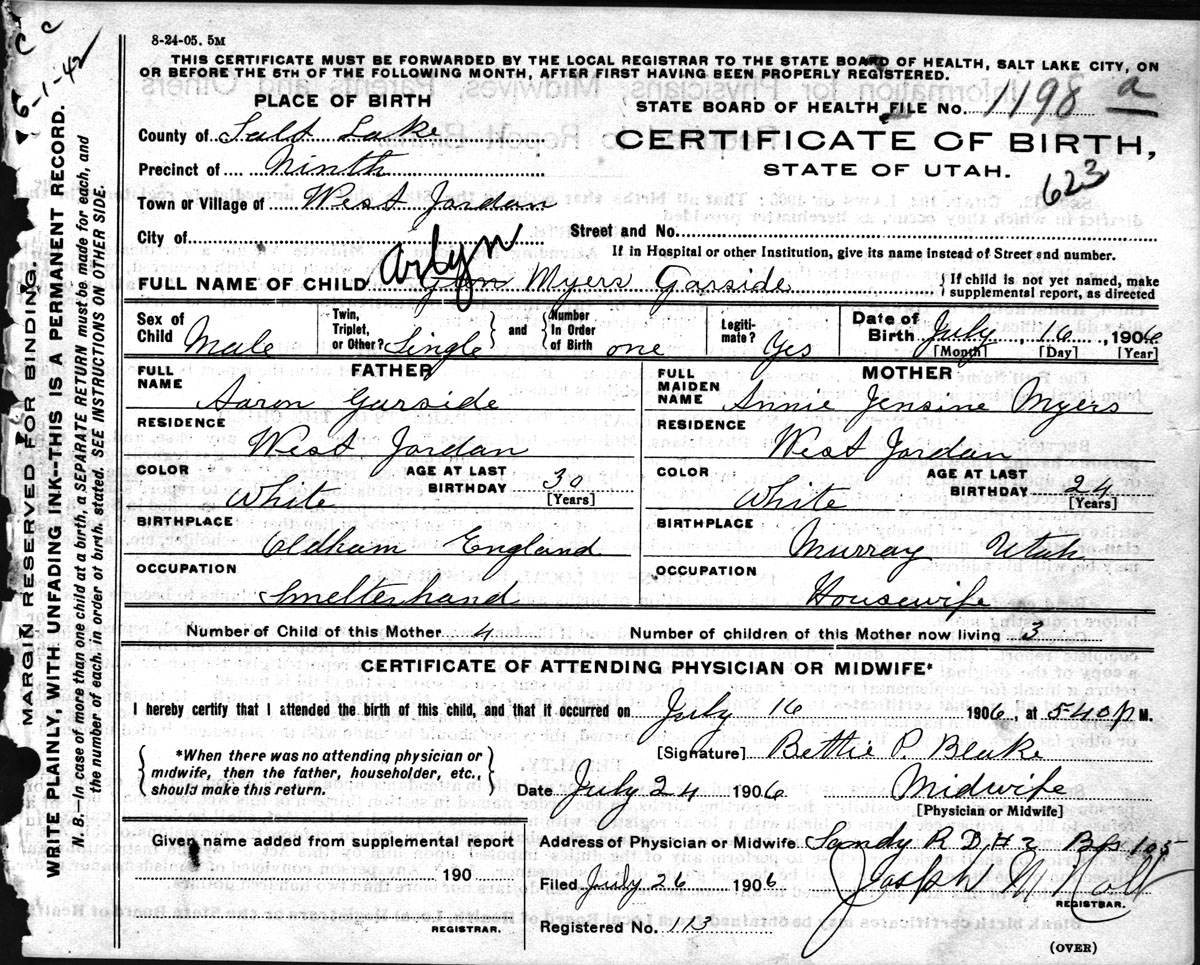 8-24-05. 5M
THIS CERTIFICATE MUST BE FORWARDED BY THE LOCAL REGISTRAR TO THE STATE BOARD OF HEALTH, SALT LAKE CITY, ON
OR BEFORE THE 5TH OF THE FOLLOWING MONTH, AFTER FIRST HAVING BEEN PROPERLY REGISTERED.
PLACE OF BIRTH
STATE BOARD OF HEALTH FILE No. 1198 a
County of Salt Lake
CERTIFICATE OF BIRTH,
STATE OF UTAH.
623
Precinct of Ninth
Town or Village of West Jordan
City of
Street and No.
If in Hospital or other Institution, give its name instead of Street and number.
Arlyn
FULL NAME OF CHILD Myers Garside
{If child is not yet named, make
supplemental report, as directed
Sex of Child Male
Twin, Triplet, or Other? Single
and
Number In Order of Birth one
Legitimate? Yes
Date of Birth July 16, 1906
[Month] [Day] [Year]
FATHER
FULL NAME Aaron Garside
RESIDENCE West Jordan
COLOR White
AGE AT LAST BIRTHDAY 30
[Years]
BIRTHPLACE Oldham England
OCCUPATION Smelterhand
MOTHER
FULL MAIDEN NAME Annie Jensine Myers
RESIDENCE West Jordan
COLOR White
AGE AT LAST BIRTHDAY 24
[Years]
BIRTHPLACE Murray Utah
OCCUPATION Housewife
Number of Child of this Mother 4
Number of children of this Mother now living 3
CERTIFICATE OF ATTENDING PHYSICIAN OR MIDWIFE*
I hereby certify that I attended the birth of this child, and that it occurred on July 16 1906, at 540 P M.
{*When there was no attending physician or
midwife, then the father, householder, etc.,
should make this return.}
[Signature] Bettie P. Blake
Date July 24 1906 Midwife
[Physician or Midwife]
Given name added from supplemental report
190
REGISTRAR.
Address of Physician or Midwife Sandy R D # 2 Bx 105
Filed July 26 1906 Joseph
REGISTRAR.
Registered No. 113
(OVER)
6-1-42
MARGIN RESERVED FOR BINDING.
WRITE PLAINLY, WITH UNFADING INK--THIS IS A PERMANENT RECORD.
N. B.--In case of more than one child at a birth, a SEPARATE RETURN must be made for each, and
the number of each, in order of birth, stated. SEE INSTRUCTIONS ON OTHER SIDE.